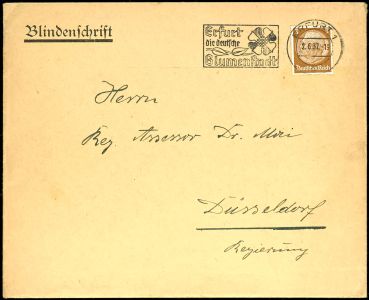 Blindenschrift
Erfurt
die deutsche
Blumenstadt
ERFURT 1
2.6.37.-18
3
Deutsches Reich
Herrn
Reg. Assessor Dr. Mai
Düsseldorf
Regierung